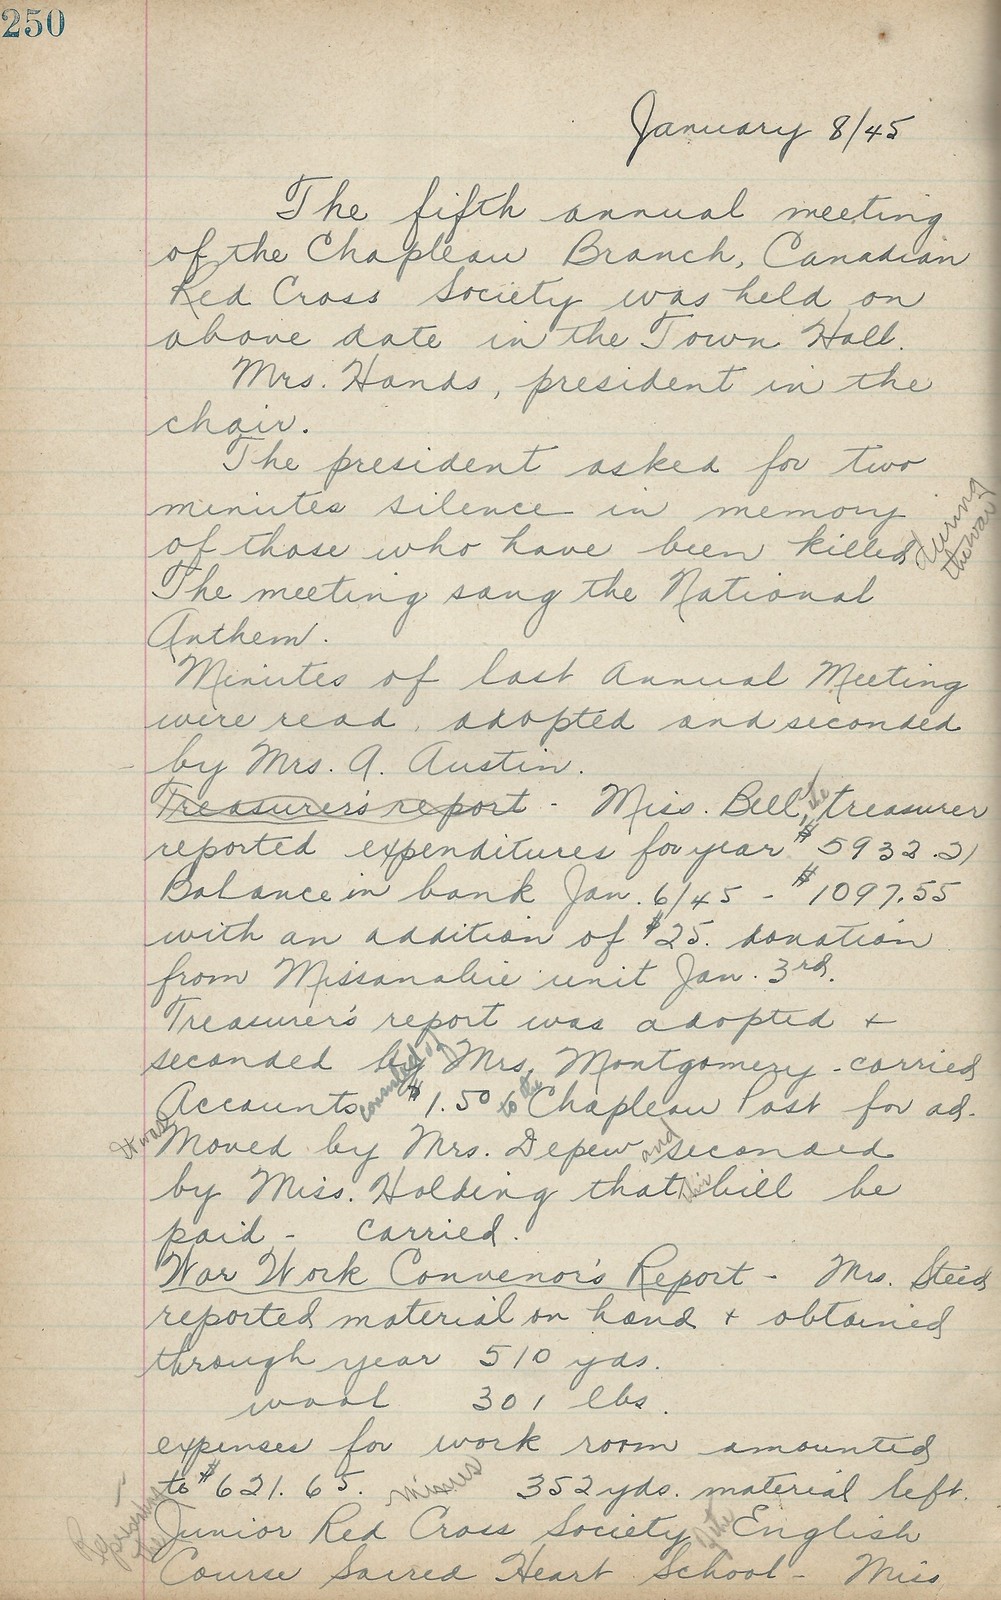 250
January 8/45
The fifth annual meeting
of the Chapleau Branch, Canadian
Red Cross Society was held on
above date in the Town Hall.
Mrs. Hands, president in the
chair.
The president asked for two
minutes silence in memory
of those who have been killed during the war
The meeting sang the National
Anthem.
Minutes of last Annual Meeting
were read, adopted and seconded
by Mrs. A. Austin.
Treasurer's report - Miss. Bell, the treasurer
reported expenditures for year $5932.21
Balance in bank Jan. 6/45 - $1097.55
with an addition of $25. donation
from Missanabie unit Jan. 3rd.
Treasurer's report was adopted +
seconded by Mrs. Montgomery - carried
Accounts consisted of $1.50 to the Chapleau Post for ad.
It was Moved by Mrs. Depew and seconded
by Miss. Holding that this bill be
paid - carried.
War Work Convenor's Report - Mrs. Steed
reported material on hand + obtained
through year 510 yds.
wool 301 lbs.
expenses for work room amounted
to $621.65. minus 352 yds. material left.
Junior Red Cross Society of the English
Course Sacred Heart School - Miss